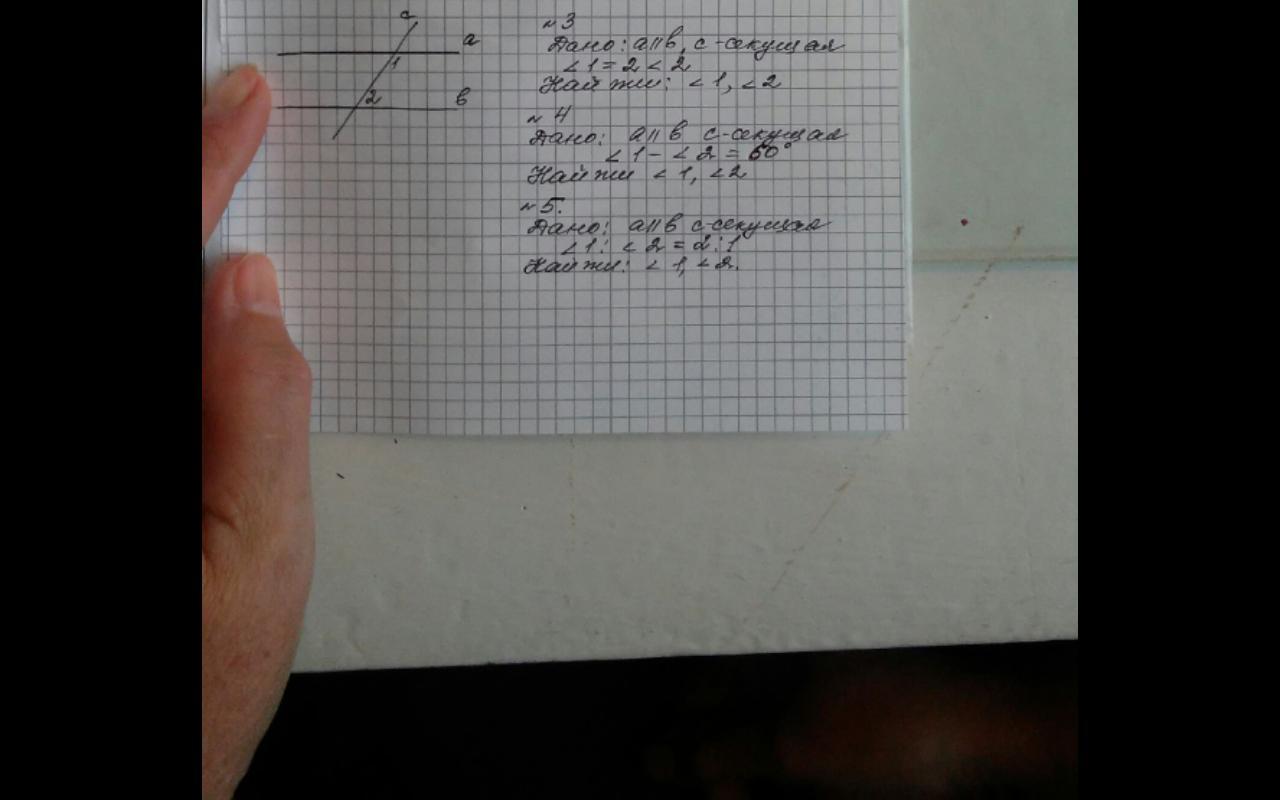 c
a
1
2
в
№3
Дано: a||в, с-секущая
<1=2<2
Найти: <1, <2
№4
Дано: a||в с-секущая
<1 - <2 = 60°
Найти <1, <2
№5.
Дано: a||в с-секущая
<1 : <2 = 2:1
Найти: <1, <2.